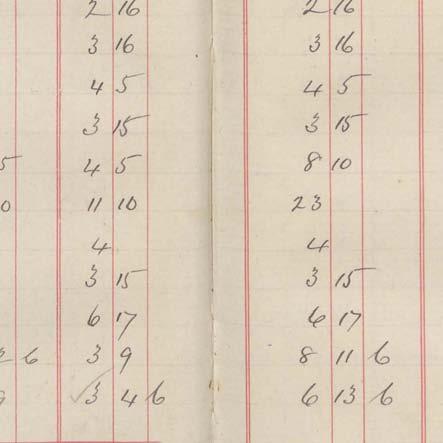 2 16 2 16
3 16 3 16
4 5 4 5
3 15 3 15
5 4 5 8 10
0 11 10 23
4 4
3 15 3 15
6 17 6 17
2 6 3 9 8 11 6
9 3 4 6 6 13 6